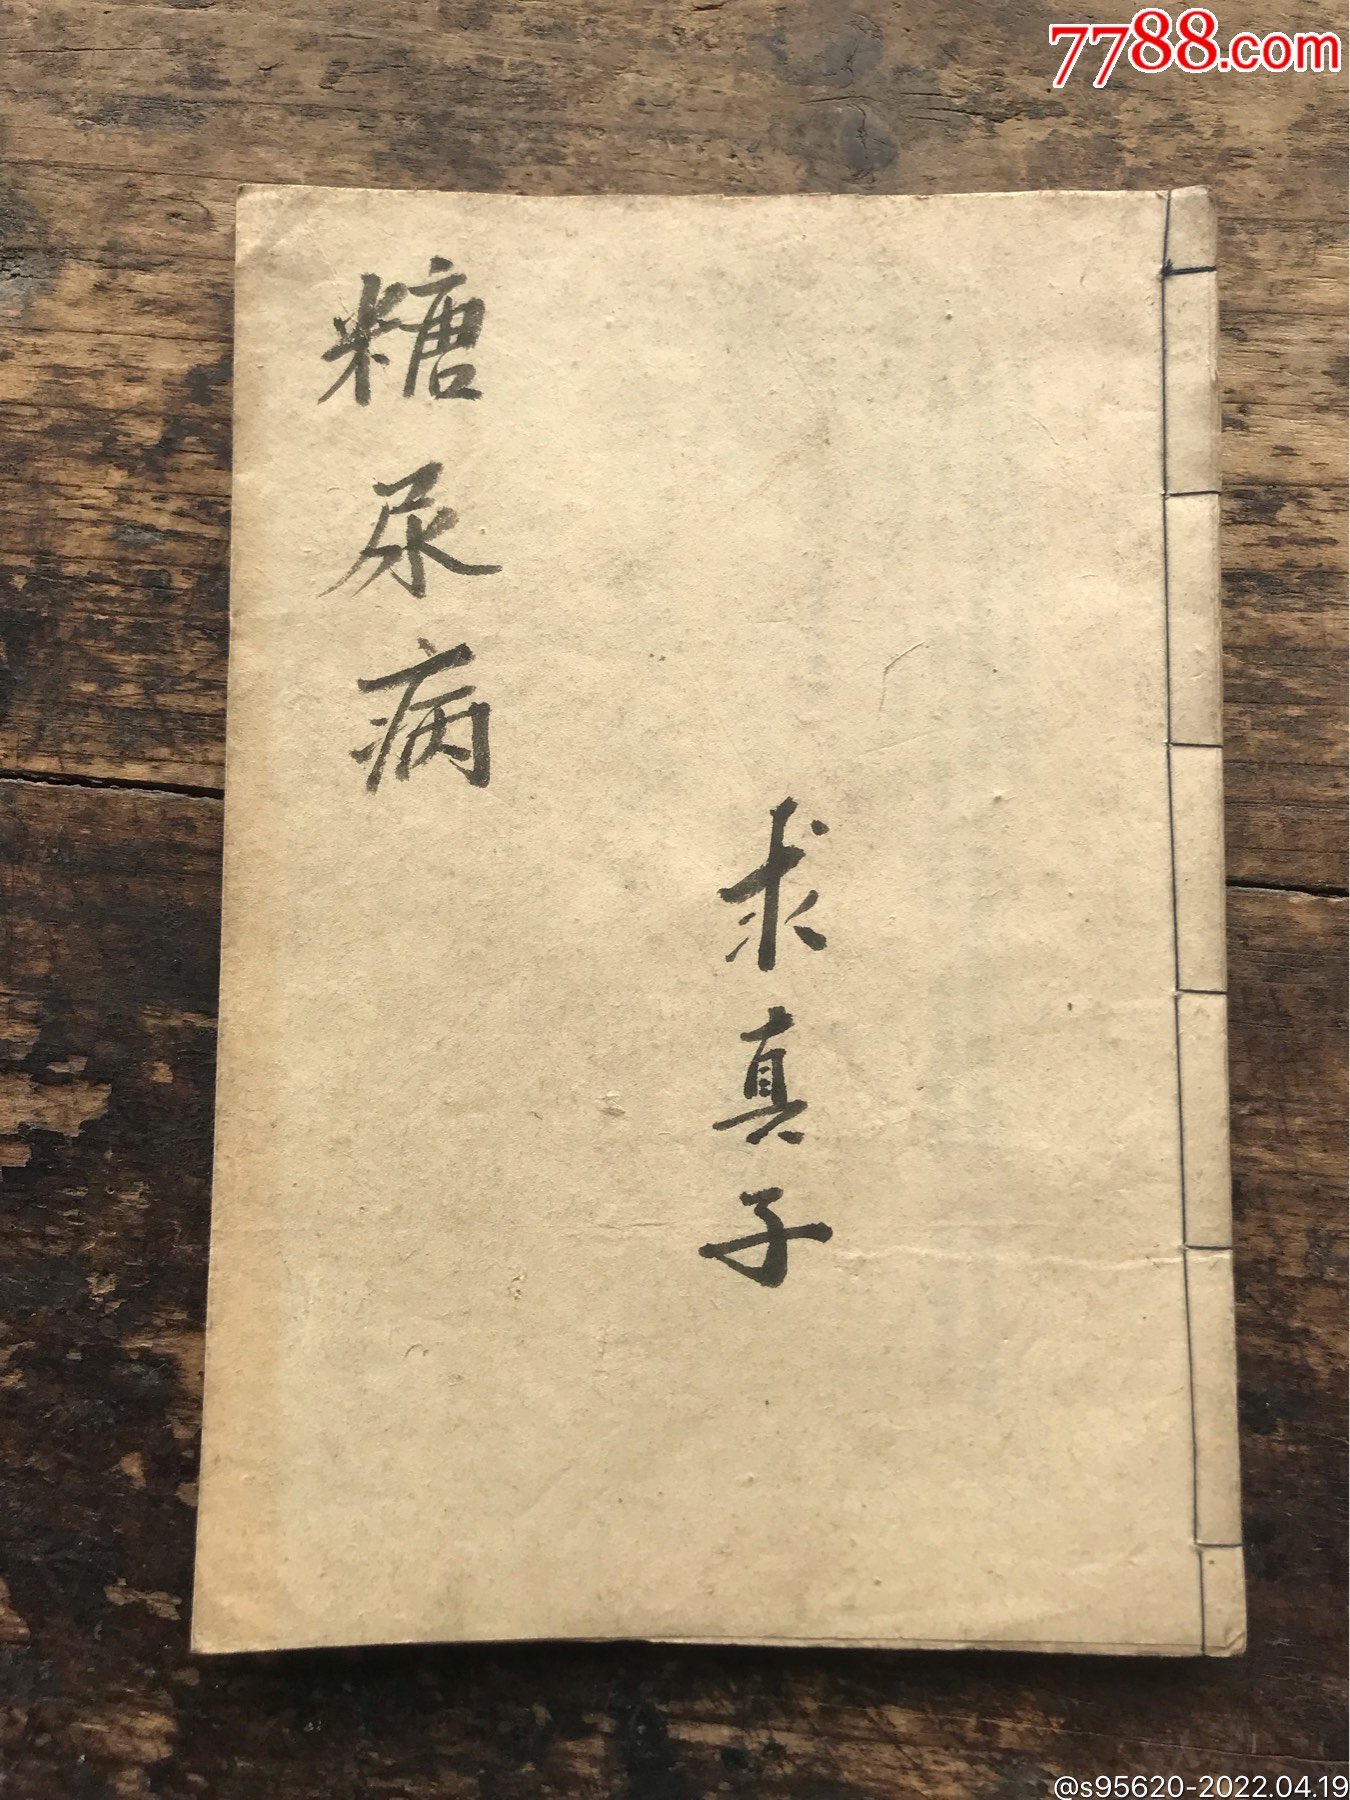 7788.com
糖尿病
求真子
@s95620-2022.04.19